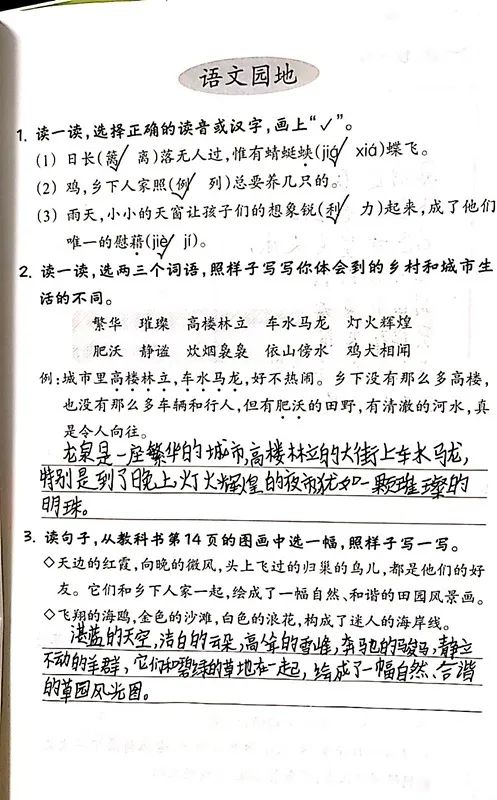 语文园地
1. 读一读,选择正确的读音或汉字,画上“✓”。
(1) 日长(篱✓ 离)落无人过,惟有蜻蜓蛱(jiá✓ xiá)蝶飞。
(2) 鸡,乡下人家照(例✓ 列)总要养几只的。
(3) 雨天,小小的天窗让孩子们的想象锐(利✓ 力)起来,成了他们
唯一的慰藉(jiè✓ jí)。
2. 读一读,选两三个词语,照样子写写你体会到的乡村和城市生
活的不同。
繁华 璀璨 高楼林立 车水马龙 灯火辉煌
肥沃 静谧 炊烟袅袅 依山傍水 鸡犬相闻
例:城市里高楼林立,车水马龙,好不热闹。乡下没有那么多高楼,
也没有那么多车辆和行人,但有肥沃的田野,有清澈的河水,真
是令人向往。
龙泉是一座繁华的城市,高楼林立的大街上车水马龙,
特别是到了晚上,灯火辉煌的夜市犹如一颗璀璨的
明珠。
3. 读句子,从教科书第14页的图画中选一幅,照样子写一写。
◇天边的红霞,向晚的微风,头上飞过的归巢的鸟儿,都是他们的好
友。它们和乡下人家一起,绘成了一幅自然、和谐的田园风景画。
◇飞翔的海鸥,金色的沙滩,白色的浪花,构成了迷人的海岸线。
湛蓝的天空,洁白的云朵,高耸的雪峰,奔驰的骏马,静立
不动的羊群,它们和碧绿的草地在一起,绘成了一幅自然、合谐
的草园风光图。